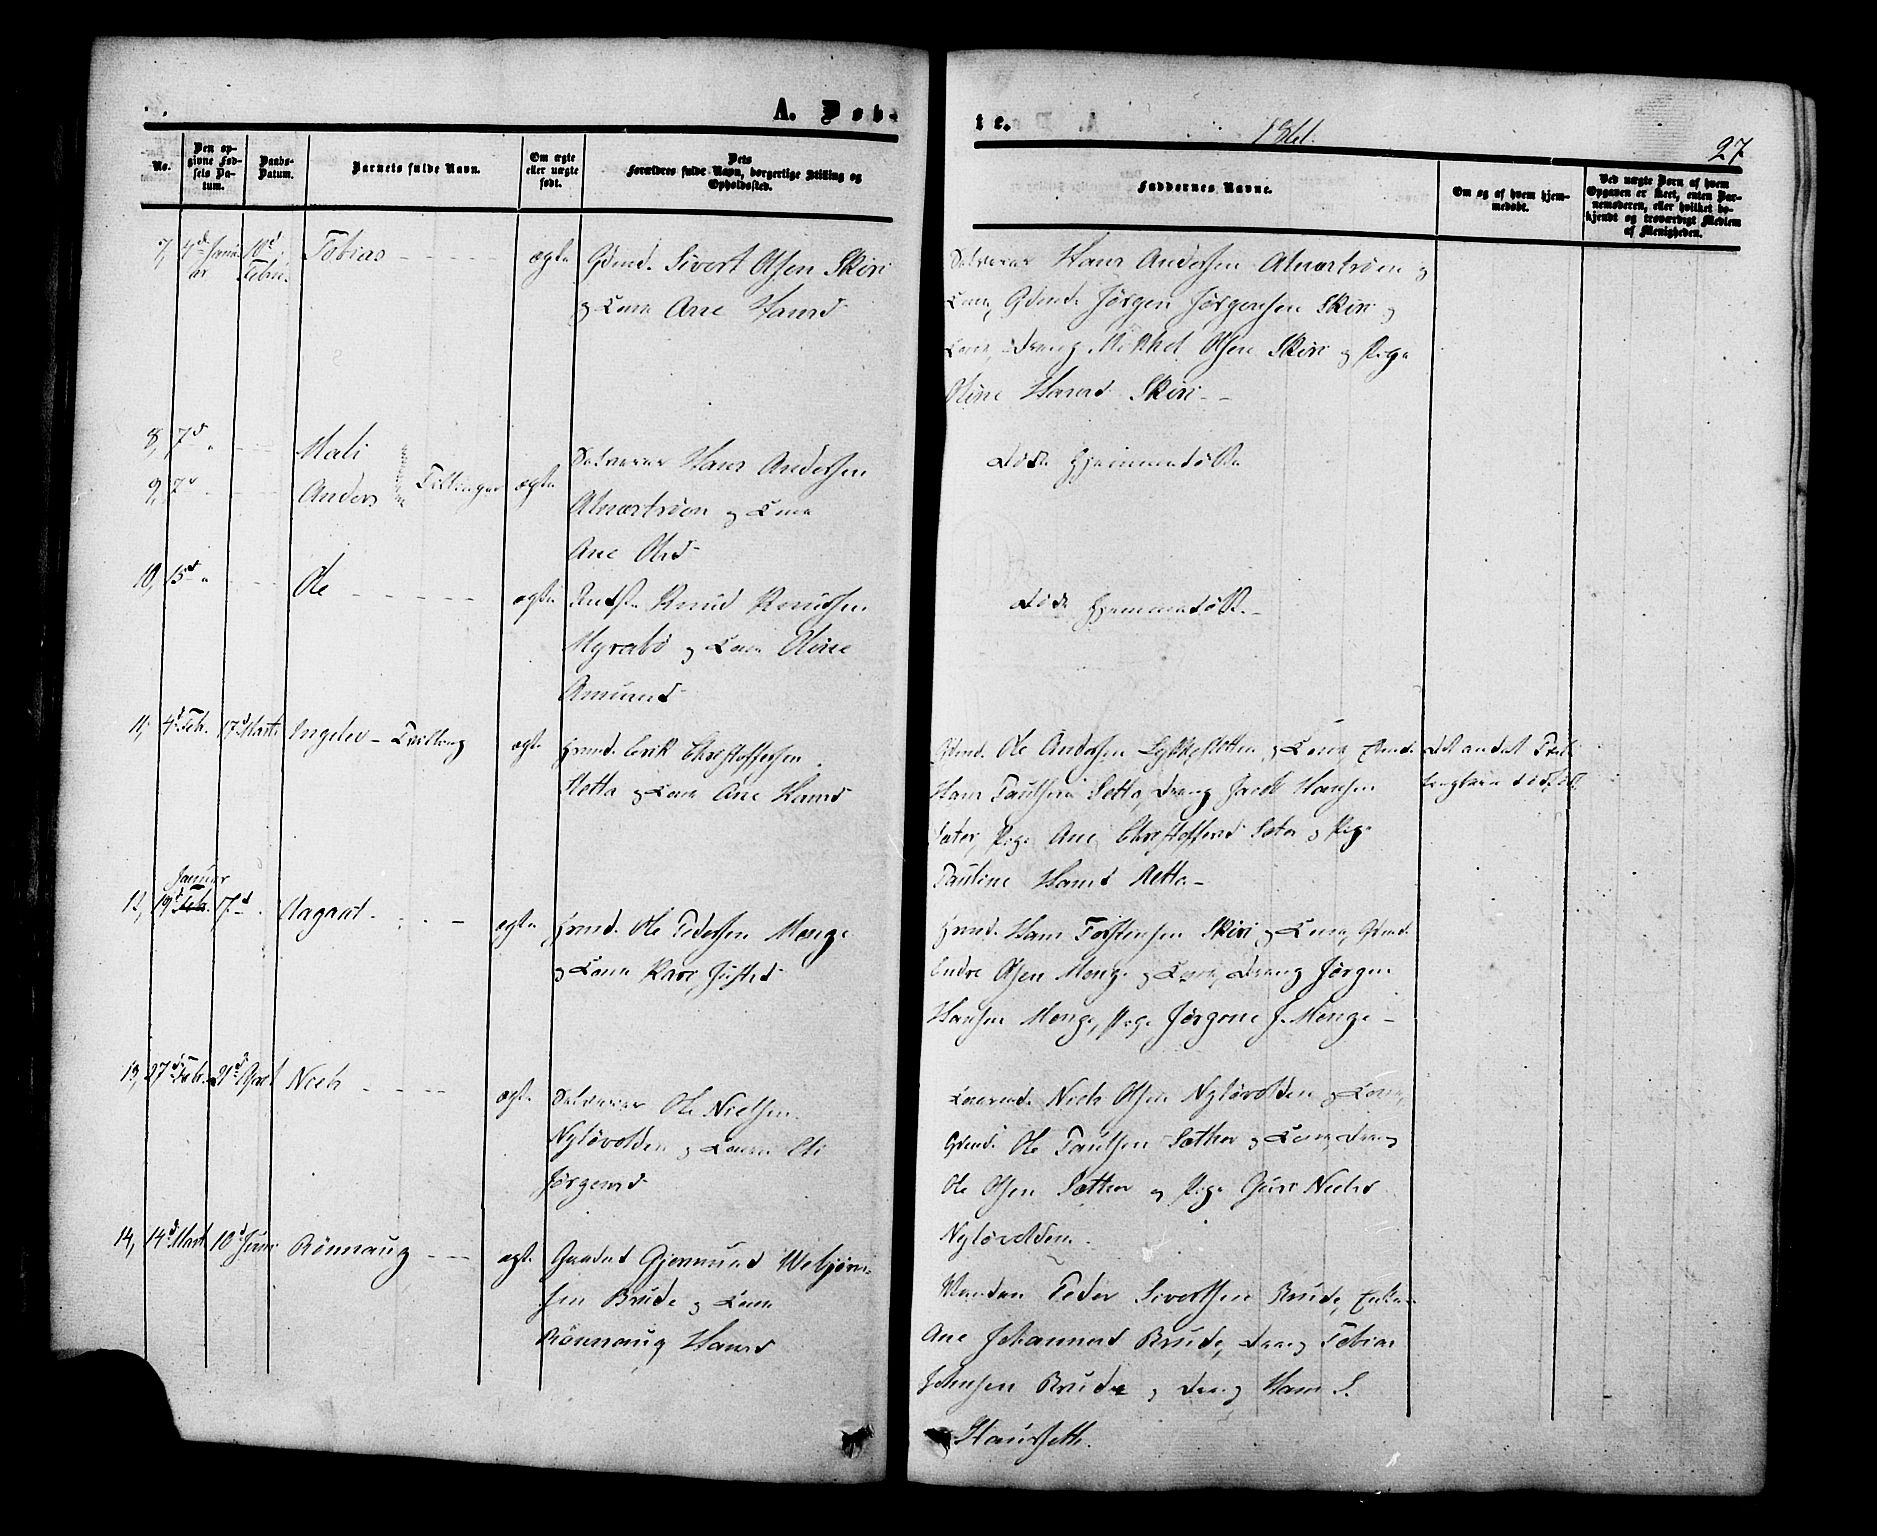 A. Døb-
te.
1861.
27
No.
Den opgivne Fødsels Datum.
Daabs-Datum.
Barnets fulde Navn.
Om ægte eller uægte født.
Dets Forældres fulde Navn, borgerlige Stilling og Opholdssted.
Faddernes Navne.
Om og af hvem hjemmedøbt.
Ved uægte Børn af hvem Opgaven er skeet, enten Barnemoderen, eller hvilket bekjendt og troværdigt Medlem af Menigheden.
7, 4d Januar 10d Febr. Tobias ægte Gdmd. Sivert Olsen Skiri
og Kone Ane Hansd
Selveier Hans Andersen Alnæstrøen og
Kone, Gdmd. Jørgen Jørgensen Skiri og
Kone, Dreng Mikkel Olsen Skiri og Pige
Oline Hansd Skiri
8, 7d " Mali
9, 7d " Anders Tvillinger ægte
Selveier Hans Andersen
Alnæstrøen og Kone
Ane Olsd
Døde hjemmedøbte
10, 15d " Ole ægte Knud Knudsen
Myrabø og Kone Oline
Amundsd
Døde hjemmedøbt.
11, 4d Feb. 17d Marts Ingelev - Tvilling ægte Grmd. Erik Christoffersen
Aetta og Kone Ane Hansd
Gdmd. Ole Andersen Lykkeslotten og Kone,
Hans Paulsen Setta, Dreng Jacob Hansen
Sæter, Pige Ane Christoffersd Sæter og Pige
Pauline Hansd Aetta
Det andet Tvillingbarn
12, 19d Feb. Januar 17d Aagaat ægte Grmd. Ole Pedersen Monge
og Kone Kari Justsd
Grmd. Hans Torstensen Skiri og Kone, Gdmd.
Endre Olsen Monge og Kone, Dreng Jørgen
Hansen Monge, Pige Jørgine J. Monge
13, 27d Febr. 21d April Niels ægte Selveier Ole Nielsen
Nyløvolden og Kone Eli
Jørgensd
Niels Olsen Nyløvolden og Kone,
Gdmd. Ole Paulsen Sæther og Kone, Dreng
Ole Olsen Sæther og Pige Guri Nielsd
Nyløvolden.
14, 14d Mart 10d Juni Rønnaug ægte Gaardmd Gjermund Webjørn-
sen Brude og Kone
Rønnaug Hansd
Peder Sivertsen Brude, Enke
Ane Johannesd Brude, Dreng Tobias
Johnsen Brude og Dreng Hans S.
Flaurseth.